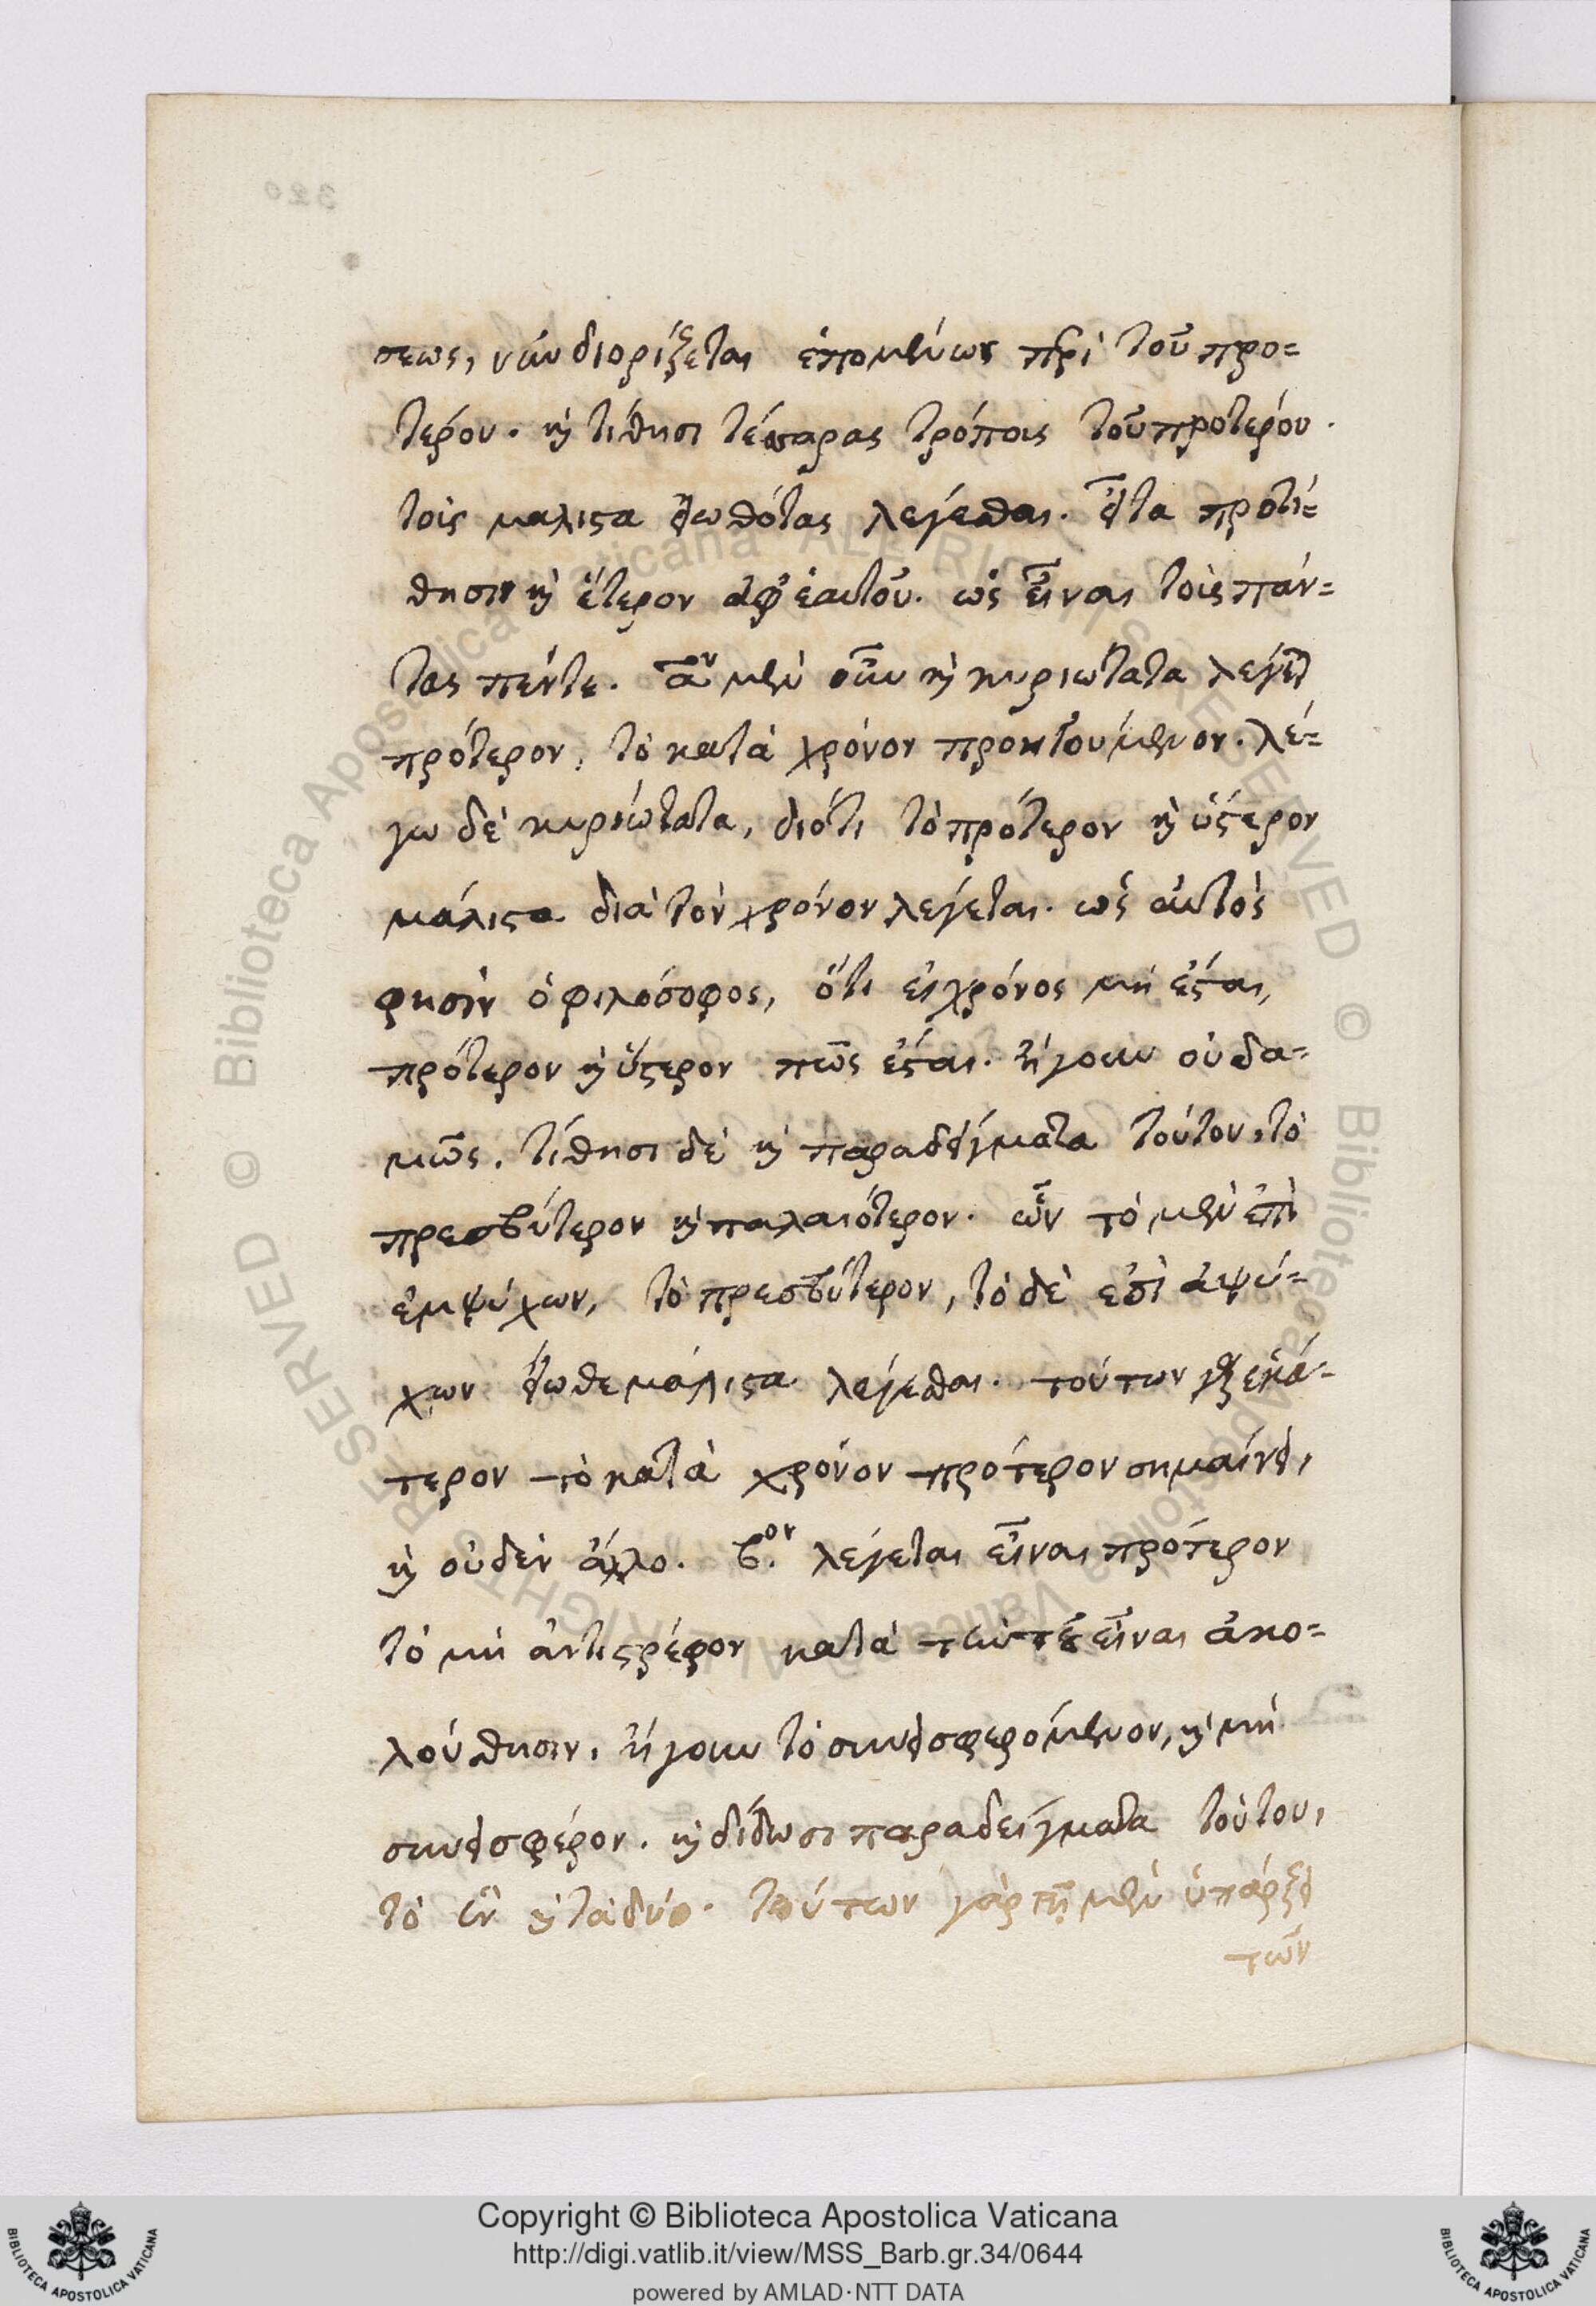 σεως, νῦν διορίζεται ἑπομένως περὶ τοῦ προ=
τέρου. καὶ τίθησι τέσσαρας τρόπους τοῦ προτέρου.
τοὺς μάλιστα εἰωθότας λέγεσθαι. εἶτα προτί=
θησιν καὶ ἕτερον ἀφ' ἑαυτοῦ. ὡς εἶναι τοὺς πάν=
τας πέντε. α^ον μὲν οὖν καὶ κυριώτατα λέγεται
πρότερον, τὸ κατὰ χρόνον προηγούμενον. λέ=
γω δὲ κυριώτατα, διότι τὸ πρότερον καὶ ὕστερον
μάλιστα διὰ τὸν χρόνον λέγεται. ὡς αὐτός
φησὶν ὁ φιλόσοφος, ὅτι εἰ χρόνος μὴ ἔσται,
πρότερον καὶ ὕστερον πῶς ἔσται. ἤγουν οὐδα=
μῶς. τίθησι δὲ καὶ παραδείγματα τούτου, τὸ
πρεσβύτερον καὶ παλαιότερον. ὧν τὸ μὲν ἐπὶ
ἐμψύχων, τὸ πρεσβύτερον, τὸ δὲ ἐπὶ ἀψύ=
χων εἴωθε μάλιστα λέγεσθαι. τούτων γὰρ ἑκά=
τερον τὸ κατὰ χρόνον πρότερον σημαίνει,
καὶ οὐδὲν ἄλλο. β.^ον λέγεται εἶναι πρότερον
τὸ μὴ ἀντιστρέφον κατὰ τὴν τοῦ εἶναι ἀκο=
λούθησιν. ἤγουν τὸ συνεισφερόμενον, καὶ μὴ
συνεισφέρον. καὶ δίδωσι παραδείγματα τούτου,
τὸ ἓν καὶ τὰ δύο. τούτων γὰρ τῇ μὲν ὑπάρξει
τῶν
Copyright © Biblioteca Apostolica Vaticana
http://digi.vatlib.it/view/MSS_Barb.gr.34/0644
powered by AMLAD·NTT DATA